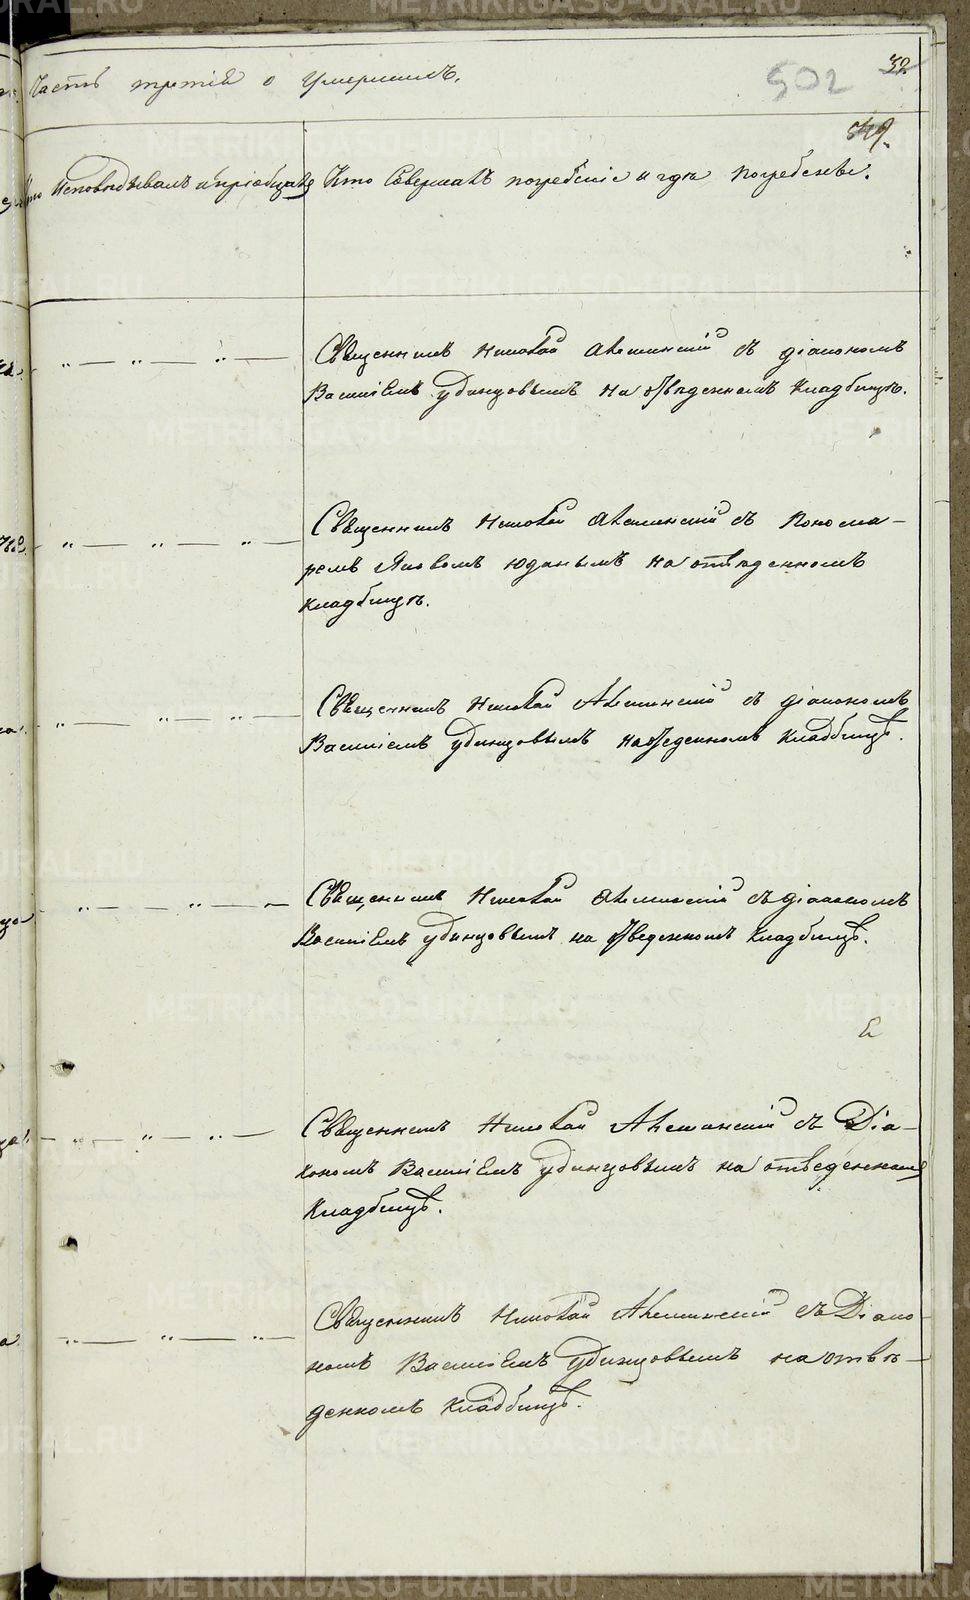 Часть третія о умершихъ.
502
32
549.
Кто исповѣдывалъ и пріобщалъ
Кто совершалъ погребеніе и гдѣ погребены.
Священникъ Николай с діакономъ
Василіемъ Удинцовымъ на отведенномъ кладбищѣ.
Священникъ Николай съ понома-
ремъ Яковомъ Юдинымъ на отведенномъ
кладбищѣ.
Священникъ Николай съ діакономъ
Василіемъ Удинцовымъ на отведенномъ кладбищѣ.
Священникъ Николай съ діакономъ
Василіемъ Удинцовымъ на отведенномъ кладбищѣ.
Священникъ Николай съ Діа-
кономъ Василіемъ Удинцовымъ на отведенномъ
кладбищѣ.
Священникъ Николай съ Діако-
номъ Василіемъ Удинцовымъ на отвѣ-
денномъ кладбищѣ.
METRIKI.GASO-URAL.RU